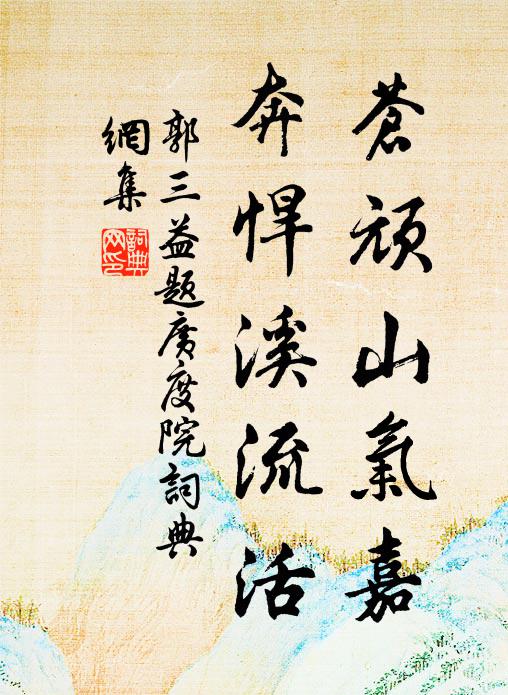 蒼頑山氣嘉
奔悍溪流活
郭三益題廣度院詞典
網集
詞典網印